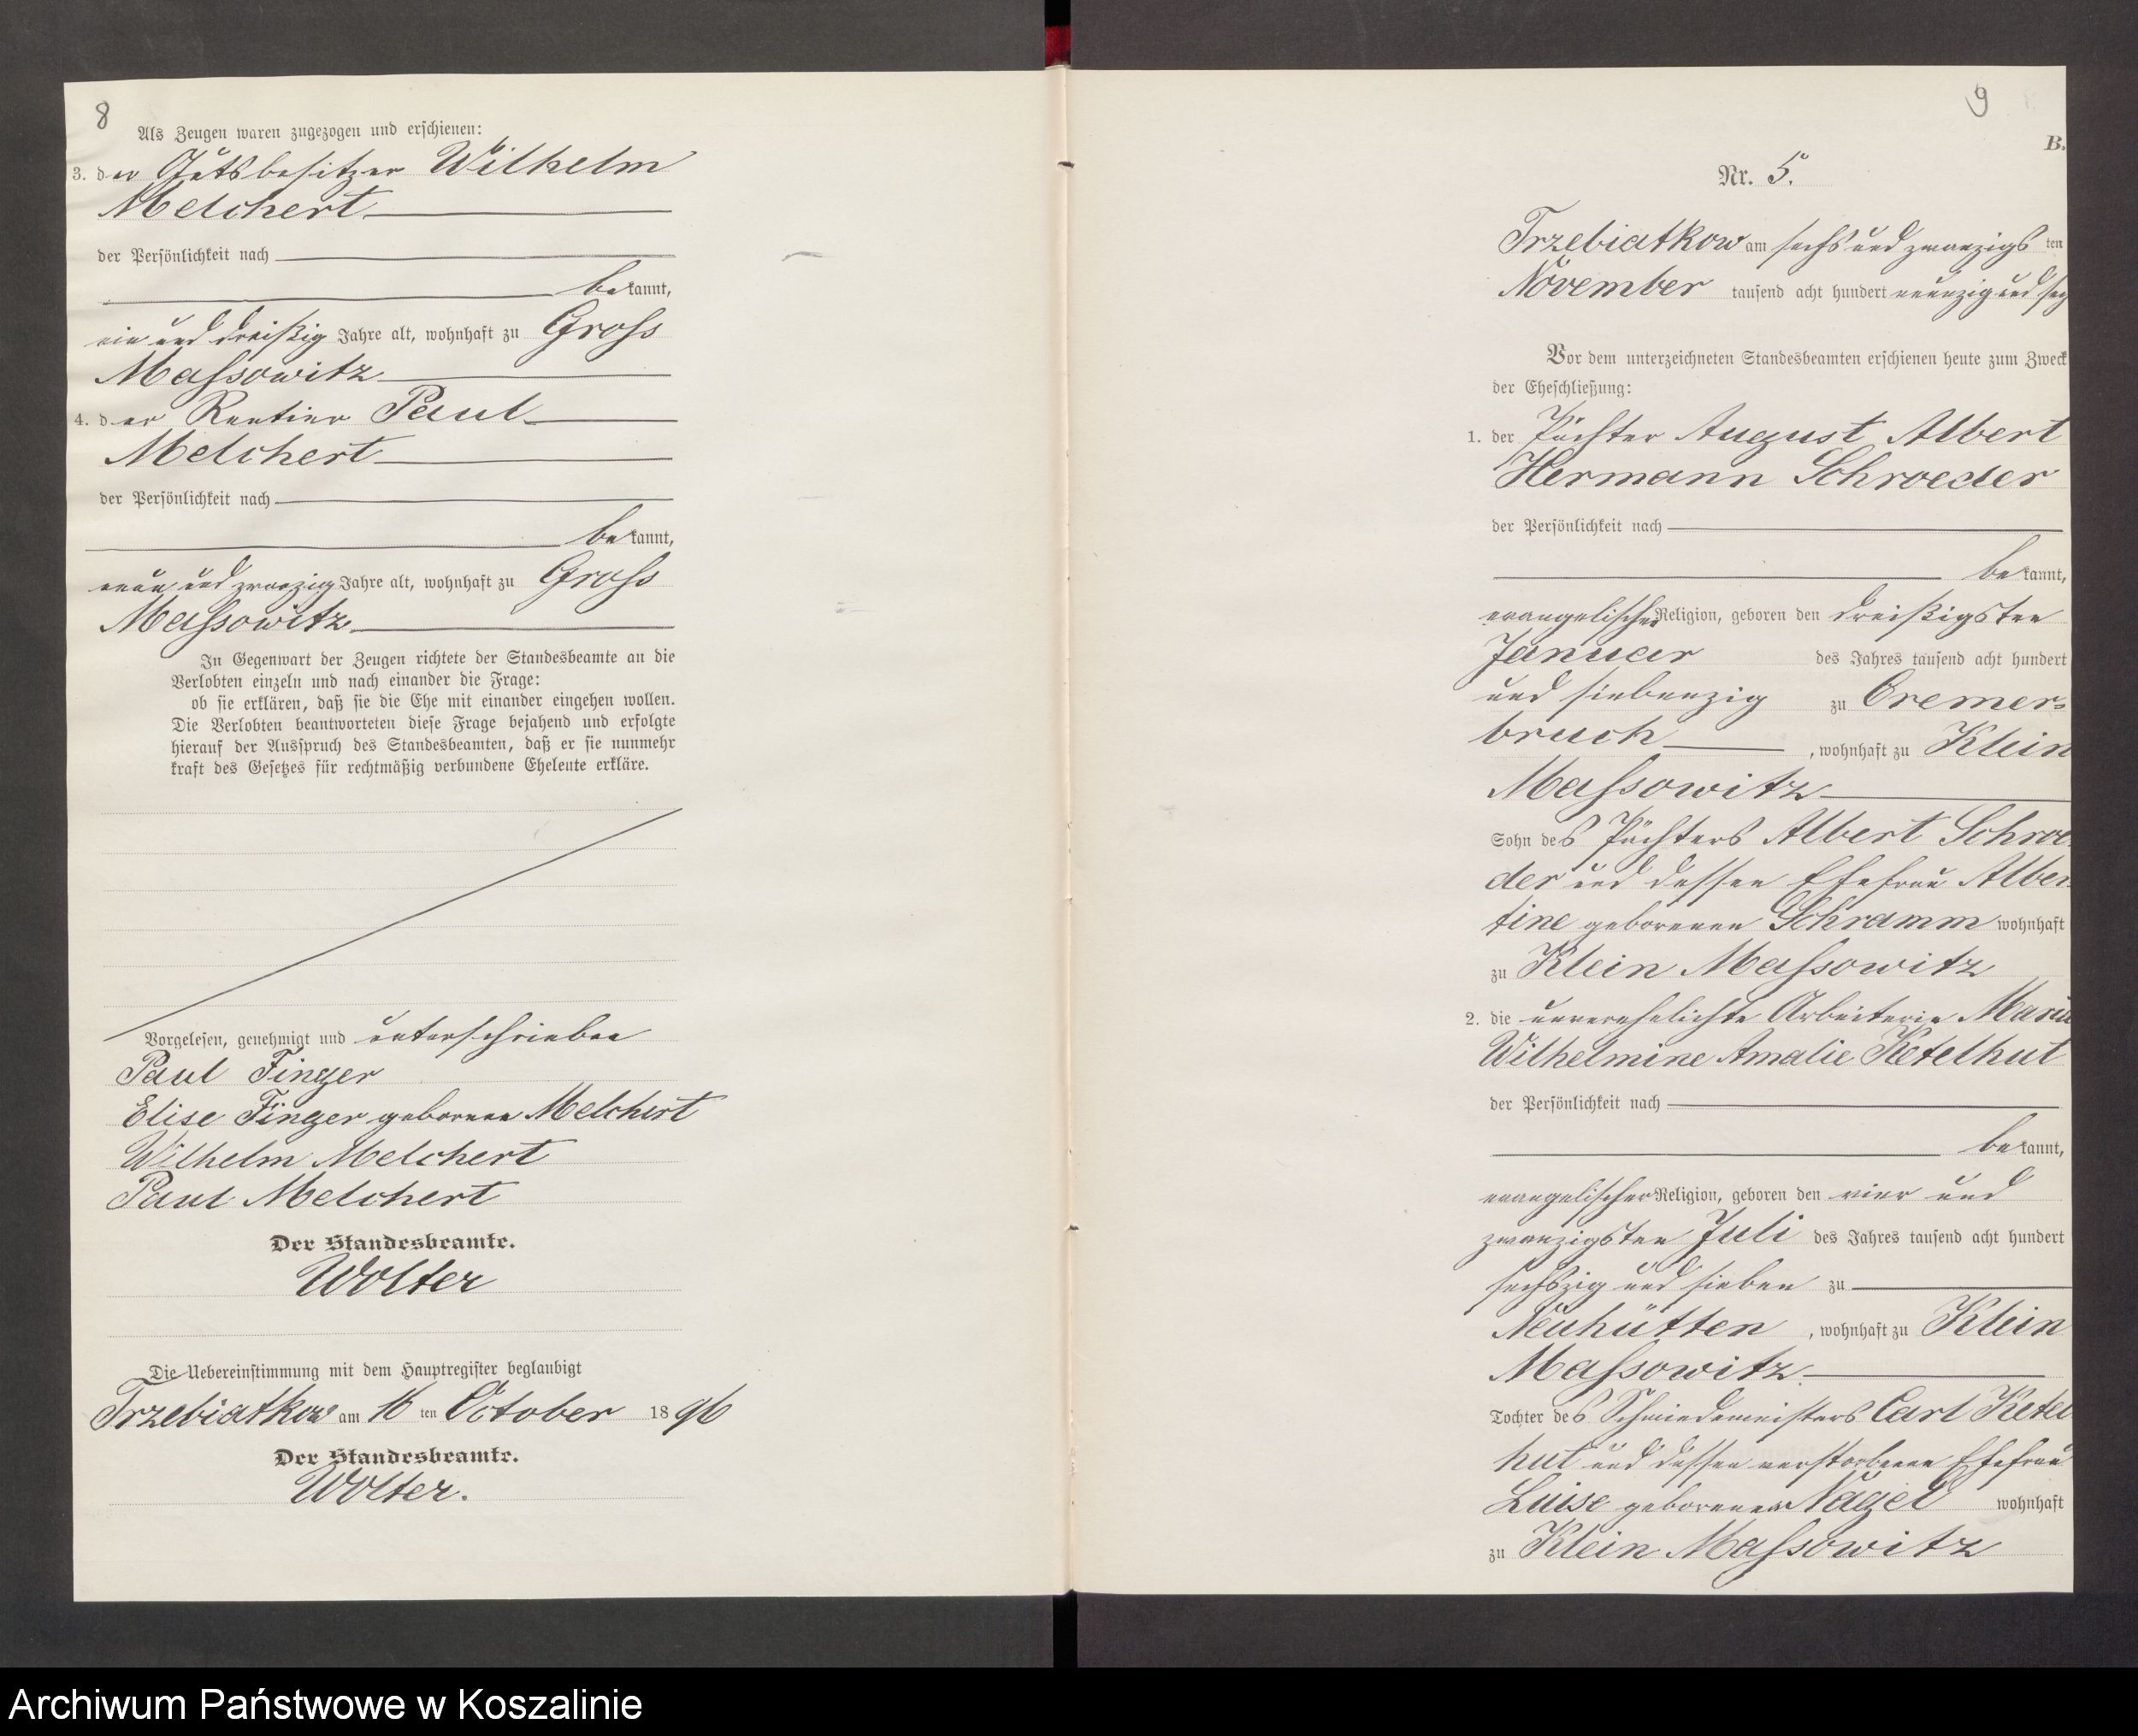 8
Als Zeugen waren zugezogen und erschienen:
3. der Gutsbesitzer Wilhelm
Melchert
der Persönlichkeit nach
bekannt,
ein und dreißig Jahre alt, wohnhaft zu Gross
Massowitz
4. der Rentier Paul
Melchert
der Persönlichkeit nach
bekannt,
neun und zwanzig Jahre alt, wohnhaft zu Gross
Massowitz
In Gegenwart der Zeugen richtete der Standesbeamte an die
Verlobten einzeln und nach einander die Frage:
ob sie erklären, daß sie die Ehe mit einander eingehen wollen.
Die Verlobten beantworteten diese Frage bejahend und erfolgte
hierauf der Ausspruch des Standesbeamten, daß er sie nunmehr
kraft des Gesetzes für rechtmäßig verbundene Eheleute erkläre.
Vorgelesen, genehmigt und unterschrieben
Paul Finger
Elise Finger geborene Melchert
Wilhelm Melchert
Paul Melchert
Der Standesbeamte.
Wolter
Die Uebereinstimmung mit dem Hauptregister beglaubigt
Trzebiatkow am 16 ten October 1896
Der Standesbeamte.
Wolter.
9
B.
Nr. 5.
Trzebiatkow am sechs und zwanzigs ten
November tausend acht hundert neunzig und sech
Vor dem unterzeichneten Standesbeamten erschienen heute zum Zweck
der Eheschließung:
1. der Pächter August Albert
Hermann Schroeder
der Persönlichkeit nach
bekannt,
evangelischer Religion, geboren den dreißigsten
Januar des Jahres tausend acht hundert
und siebenzig zu Cremer-
bruch, wohnhaft zu Klein
Massowitz
Sohn des Pächters Albert Schroe
der und dessen Ehefrau Alber
tine geborenen Schramm wohnhaft
zu Klein Massowitz
2. die unverehelichte Arbeiterin Marie
Wilhelmine Amalie Ketelhut
der Persönlichkeit nach
bekannt,
evangelischer Religion, geboren den vier und
zwanzigsten Juli des Jahres tausend acht hundert
sechszig und sieben zu
Neuhütten, wohnhaft zu Klein
Massowitz
Tochter des Schmiedemeisters Carl Ketel
hut und dessen verstorbenen Ehefrau
Luise geborenen Nagel wohnhaft
zu Klein Massowitz
Archiwum Państwowe w Koszalinie